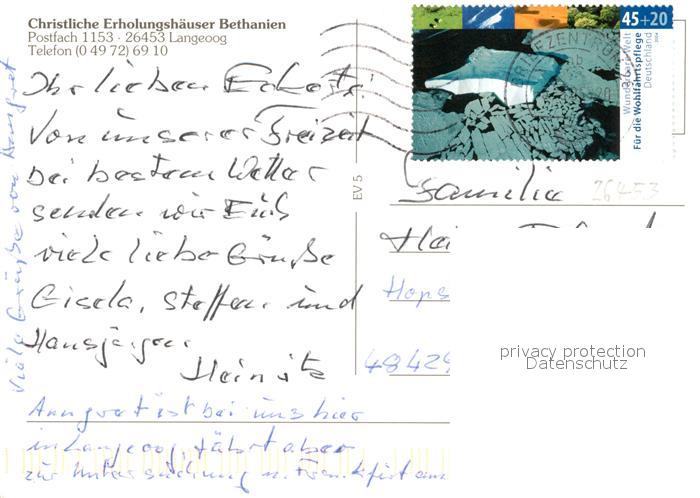 Christliche Erholungshäuser Bethanien
Postfach 1153 · 26453 Langeoog
Telefon (0 49 72) 69 10
Ihr lieben
Von unserer Freizeit
bei bestem Wetter
senden wir Euch
viele liebe Grüße
Gisela, Steffen und
Hansjürgen
Heinitz
Anngret ist bei uns hier
in Langeoog, fährt aber
zur Untersuchung n. Frankfurt am
Viele Grüße von Anngret
EV 5
45+20
Wunderbare Welt
Für die Wohlfahrtspflege
Deutschland
BRIEFZENTRUM
Familie
26453
Hei
Hops
48429
privacy protection
Datenschutz